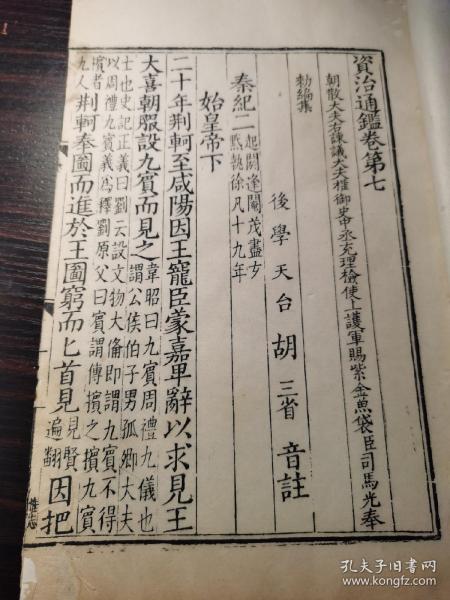 資治通鑑卷第七
朝散大夫右諫議大夫權御史中丞充理檢使上護軍賜紫金魚袋臣司馬光奉
勑編集
後學天台胡三省音註
秦紀二起閼逢閹茂盡玄黓執徐凡十九年
始皇帝下
二十年荆軻至咸陽因王寵臣蒙嘉卑辭以求見王
大喜朝服設九賓而見之韋昭曰九賓周禮九儀也謂公侯伯子男孤卿大夫
士也史記正義曰劉云設文物大備即謂九賓不得以周禮九賓義爲釋劉原父曰賓謂傳擯之擯九賓
擯者九人荆軻奉圖而進於王圖窮而匕首見見賢遍翻因把
孔夫子旧书网
www.kongfz.com